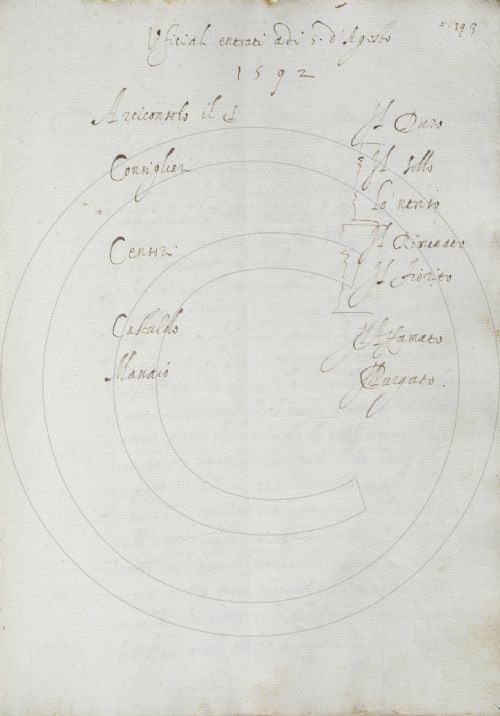 Vficiali entrati adi 5. d'Agosto
1592
Arciconsolo il Il Duro
Consiglieri Il sollo
Lo'nferigno
Censori Il Rimenato
Il fiorito
Castaldo Il Affamato
Massaio Il Purgato.